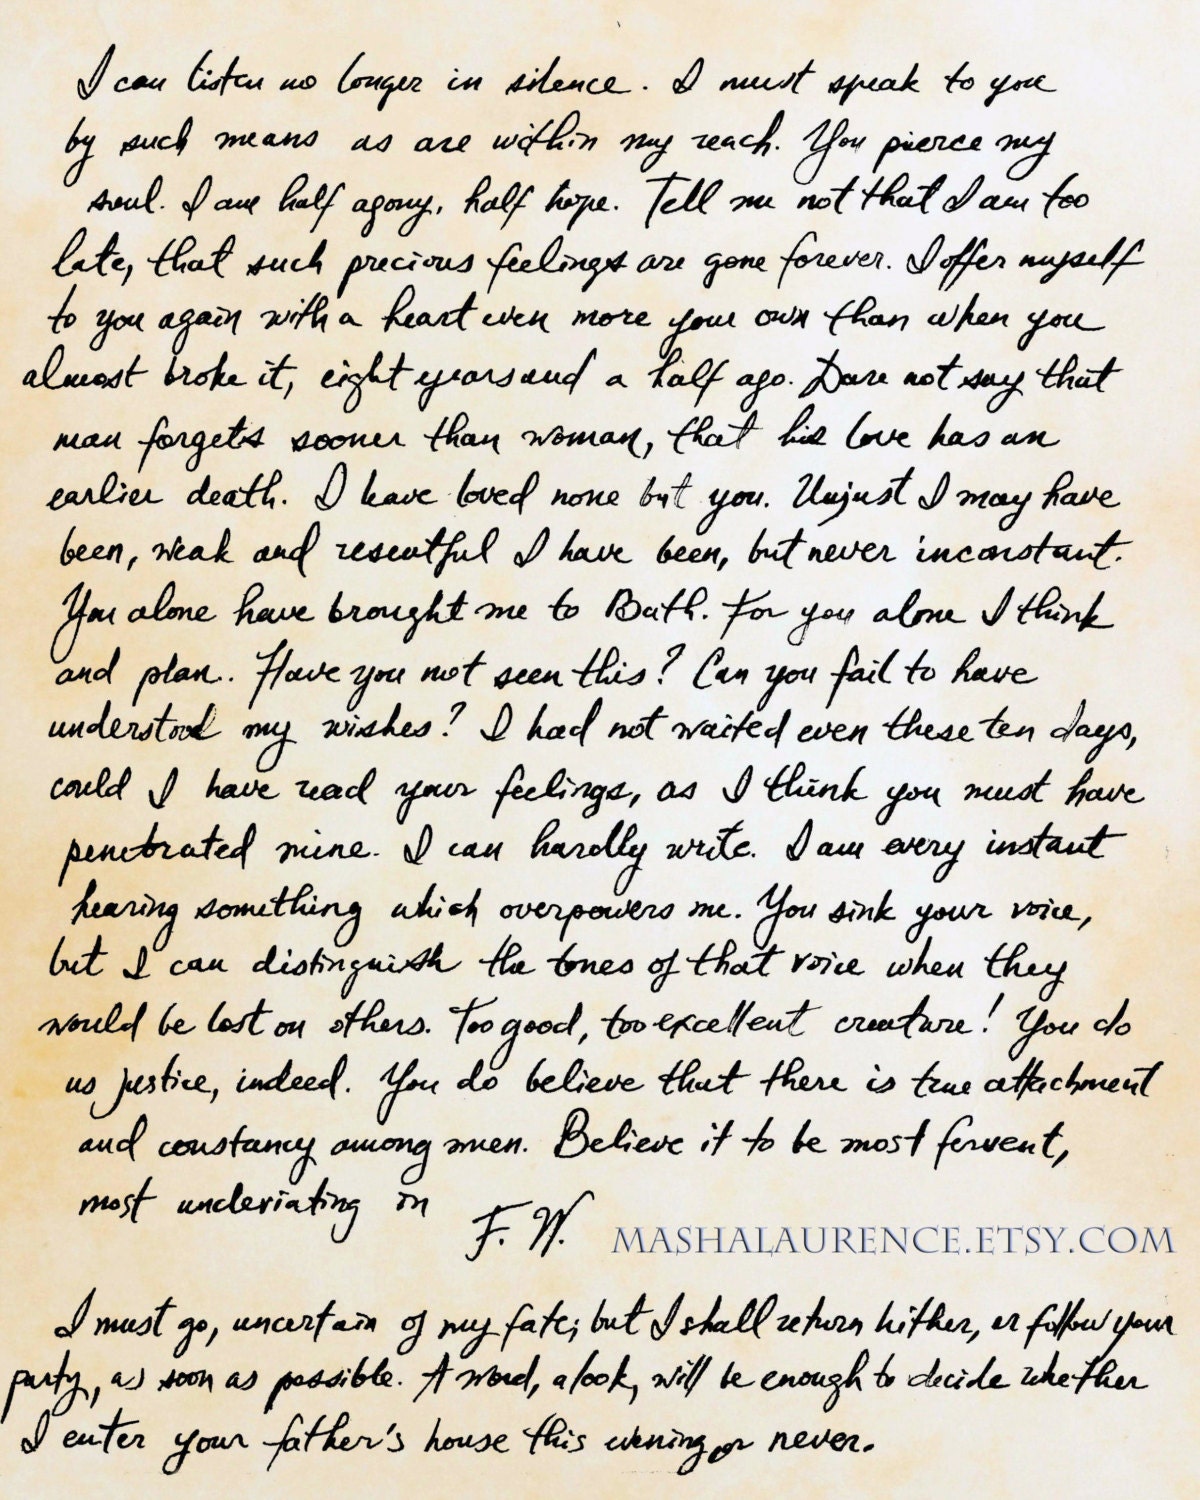 I can listen no longer in silence. I must speak to you
by such means as are within my reach. You pierce my
soul. I am half agony, half hope. Tell me not that I am too
late, that such precious feelings are gone forever. I offer myself
to you again with a heart even more your own than when you
almost broke it, eight years and a half ago. Dare not say that
man forgets sooner than woman, that his love has an
earlier death. I have loved none but you. Unjust I may have
been, weak and resentful I have been, but never inconstant.
You alone have brought me to Bath. For you alone I think
and plan.. Have you not seen this? Can you fail to have
understood my wishes? I had not waited even these ten days,
could I have read your feelings, as I think you must have
penetrated mine. I can hardly write. I am every instant
hearing something which overpowers me. You sink your voice,
but I can distinguish the tones of that voice when they
would be lost on others. Too good, too excellent creature! You do
us justice, indeed. You do believe that there is true attachment
and constancy among men. Believe it to be most fervent,
most undeviating in
F. W.
MASHALAURENCE.ETSY.COM
I must go, uncertain of my fate; but I shall return hither, or follow your
party, as soon as possible. A word, a look, will be enough to decide whether
I enter your father's house this evening or never.